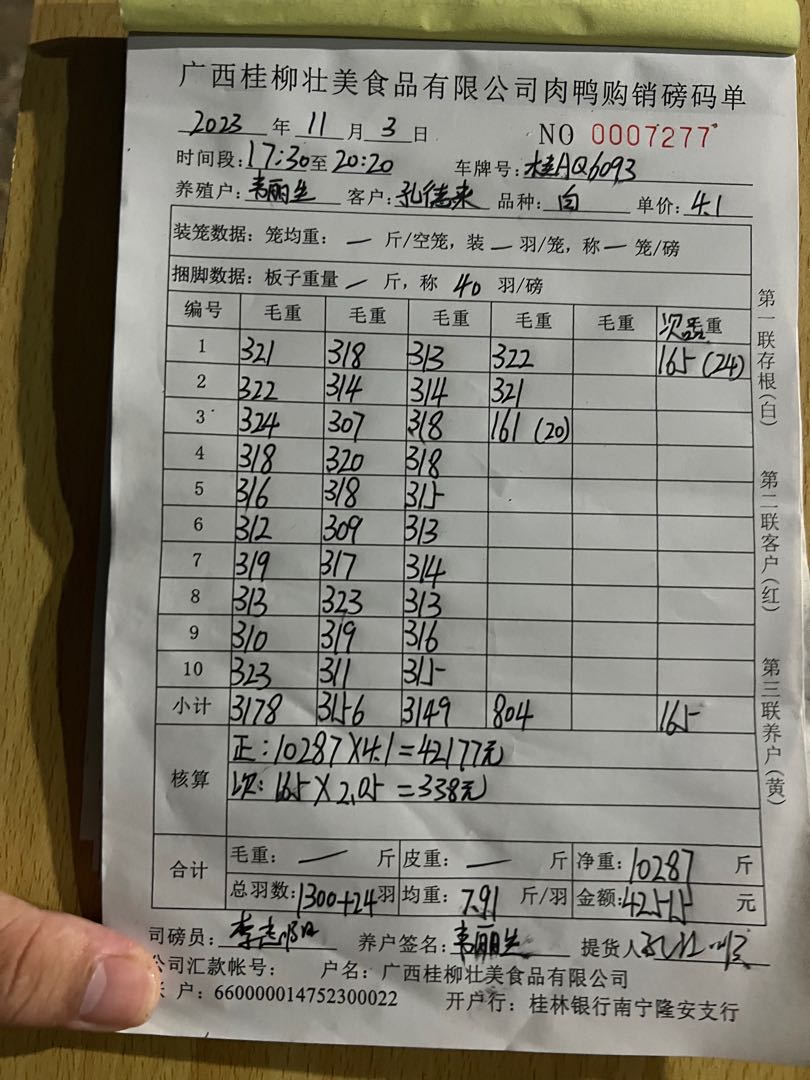 广西桂柳壮美食品有限公司肉鸭购销磅码单
2023 年 11 月 3 日 NO 0007277
时间段:17:30至20:20 车牌号:桂AQ6093
养殖户:韦丽生 客户:孔德来 品种:白 单价:4.1
装笼数据:笼均重:一斤/空笼,装一羽/笼,称一笼/磅
捆脚数据:板子重量一斤,称 40 羽/磅
编号 毛重 毛重 毛重 毛重 毛重 次毛重
1 321 318 313 322 165(24)
2 322 314 314 321
3 324 307 318 161(20)
4 318 320 318
5 316 318 315
6 312 309 313
7 319 317 314
8 313 323 313
9 310 319 316
10 323 311 315
小计 3178 3156 3149 804 165
核算
正:10287×4.1=42177元
次:165×2.05=338元
合计
毛重:一斤 皮重:一斤 净重:10287斤
总羽数:1300+24羽 均重:7.91斤/羽 金额:42515元
司磅员: 养户签名:韦丽生 提货人
公司汇款帐号: 户名:广西桂柳壮美食品有限公司
户:660000014752300022 开户行:桂林银行南宁隆安支行
第一联存根(白)
第二联客户(红)
第三联养户(黄)